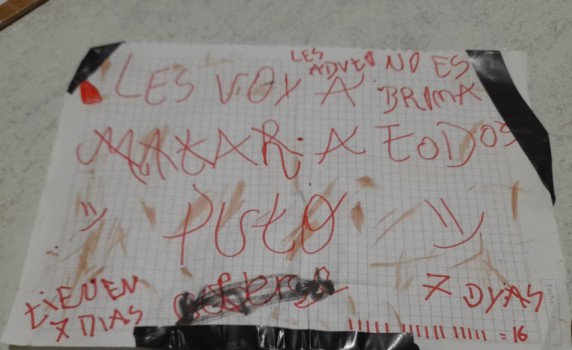 LES VOY A
LES ADVER NO ES BRMA
MATAR A TODOS
PUTO
=)
TIENEN
7 DIAS
7 DYAS
= 16